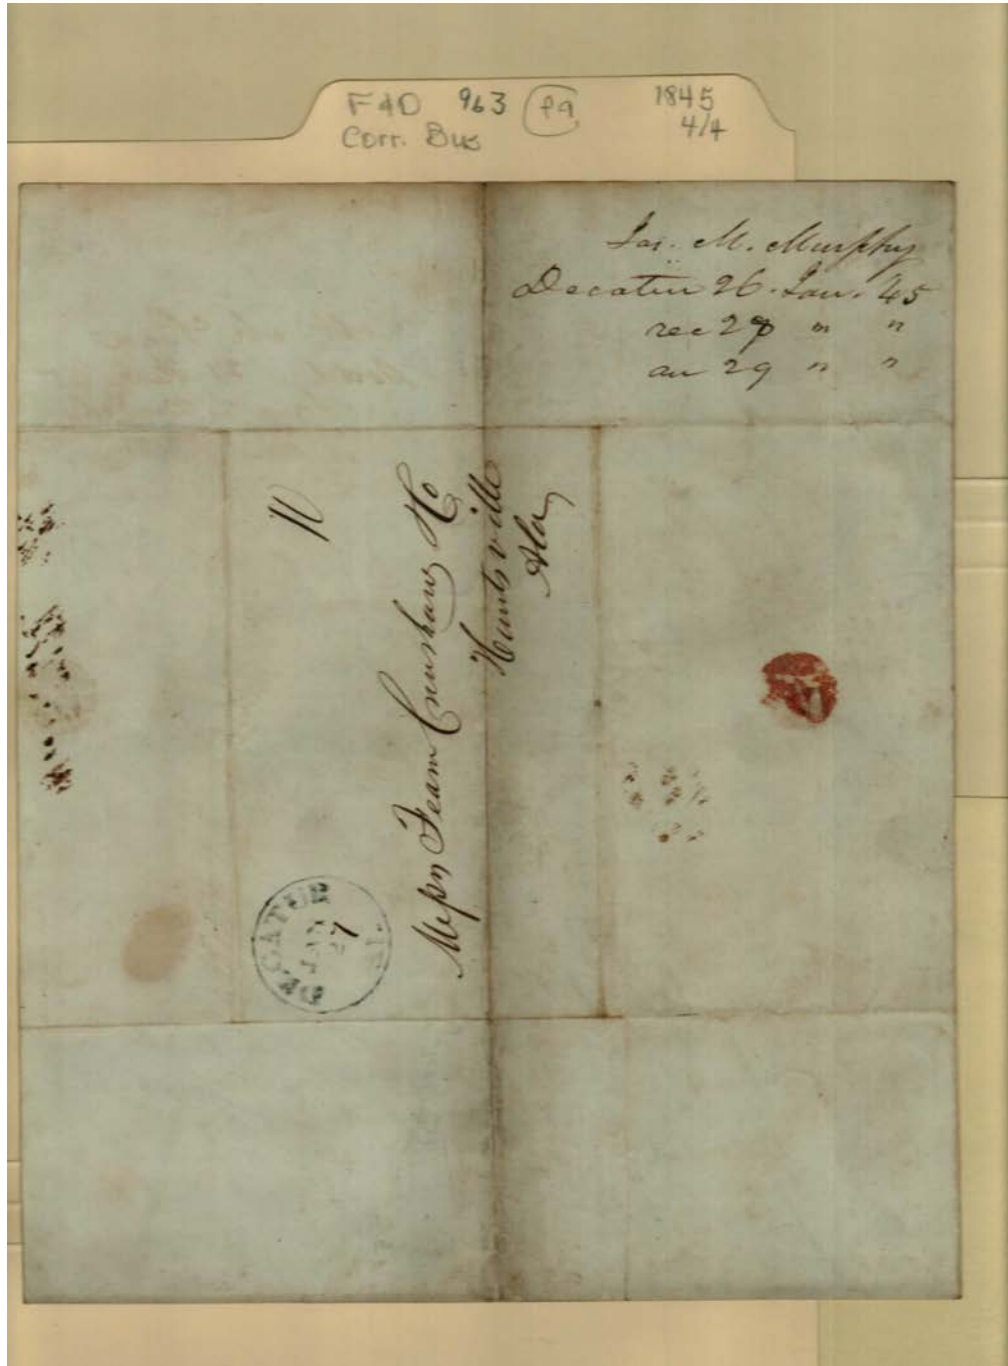 F&D 963 P9 1845
Corr. Bus 4/4
Jas. M. Murphy
Decatur 26. Jan. 45
rec 28 " "
an 29 " "
Messrs Fearn Crenshaw & Co
Huntsville
Ala
DECATUR
JAN
27